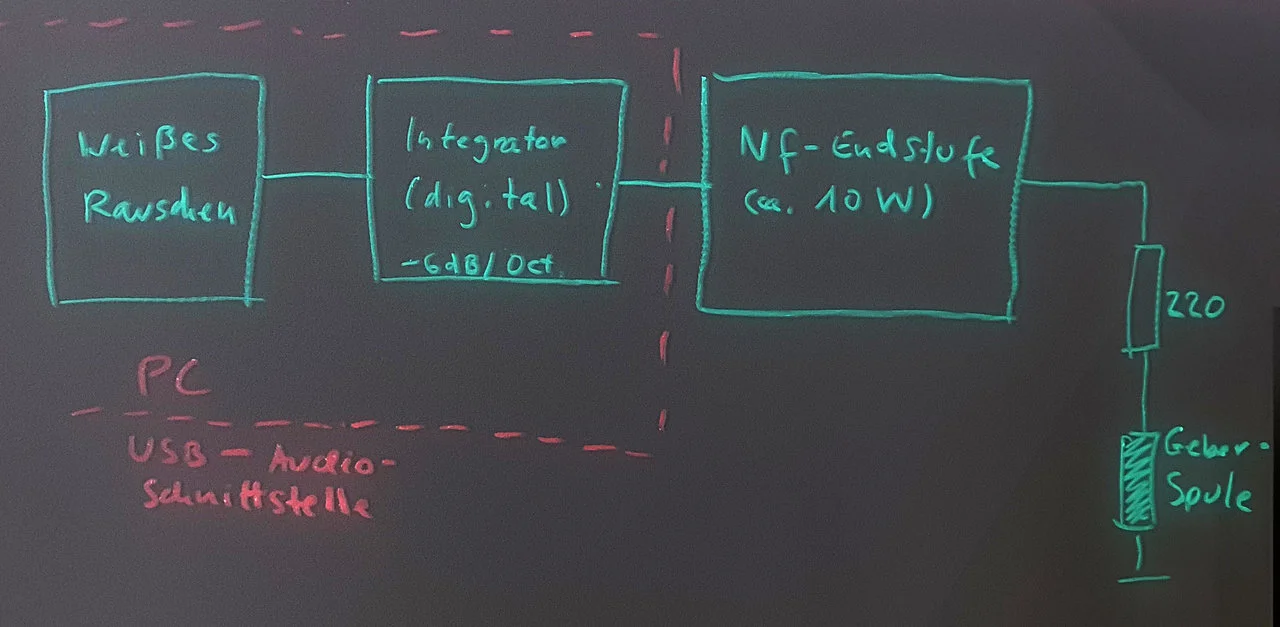 Weißes
Rauschen
Integrator
(digital)
-6dB/Oct.
Nf-Endstufe
(ca. 10 W)
220
Geber-
Spule
PC
USB - Audio-
Schnittstelle